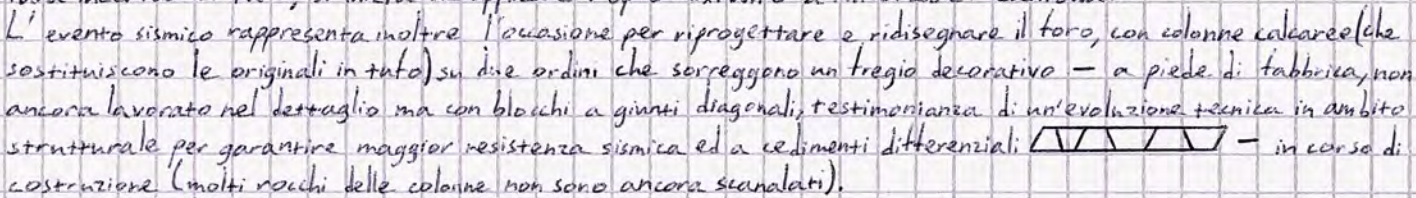 L'evento sismico rappresenta inoltre l'occasione per riprogettare e ridisegnare il foro, con colonne calcaree (che
sostituiscono le originali in tufo) su due ordini che sorreggono un fregio decorativo – a piede di fabbrica, non
ancora lavorato nel dettaglio ma con blocchi a giunti diagonali, testimonianza di un'evoluzione tecnica in ambito
strutturale per garantire maggior resistenza sismica ed a cedimenti differenziali – in corso di
costruzione (molti rocchi delle colonne non sono ancora scanalati).